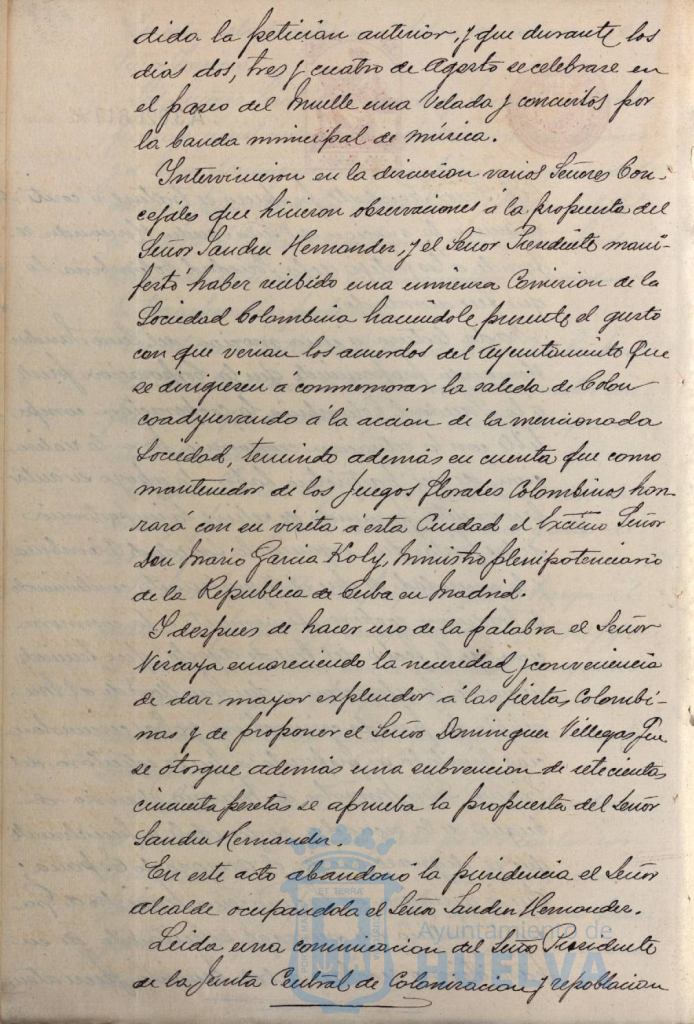 dida la peticion anterior, y que durante los
dias dos, tres y cuatro de Agosto se celebrase en
el paseo del Muelle una Velada y conciertos por
la banda municipal de música.
Intervinieron en la discusion varios Señores Con-
cejales que hicieron observaciones á la propuesta del
Señor Sandra Hernandez, y el Señor Presidente mani-
festó haber recibido una Comision de la
Sociedad Colombina haciendole presente el gusto
con que verian los acuerdos del Ayuntamiento que
se dirigiesen á conmemorar la salida de Colon
coadyuvando á la accion de la mencionada
Sociedad, teniendo además en cuenta que como
mantenedor de los Juegos florales Colombinos hon-
rará con su visita á esta Ciudad el Excmo Señor
Don Mario Garcia Koly, Ministro plenipotenciario
de la Republica de Cuba en Madrid.
Y despues de hacer uso de la palabra el Señor
Vizcaya encareciendo la necesidad y conveniencia
de dar mayor explendor á las fiestas Colombi-
nas y de proponer el Señor Dominguez Villegas que
se otorgue además una subvencion de setecientas
cincuenta pesetas se aprueba la propuesta del Señor
Sandra Hernandez.
En este acto abandonó la presidencia el Señor
Alcalde ocupandola el Señor Sandra Hernandez.
Leida una comunicacion del Señor Presidente
de la Junta Central de Colonizacion y repoblacion
ET TERRÆ
Ayuntamiento de
HUELVA